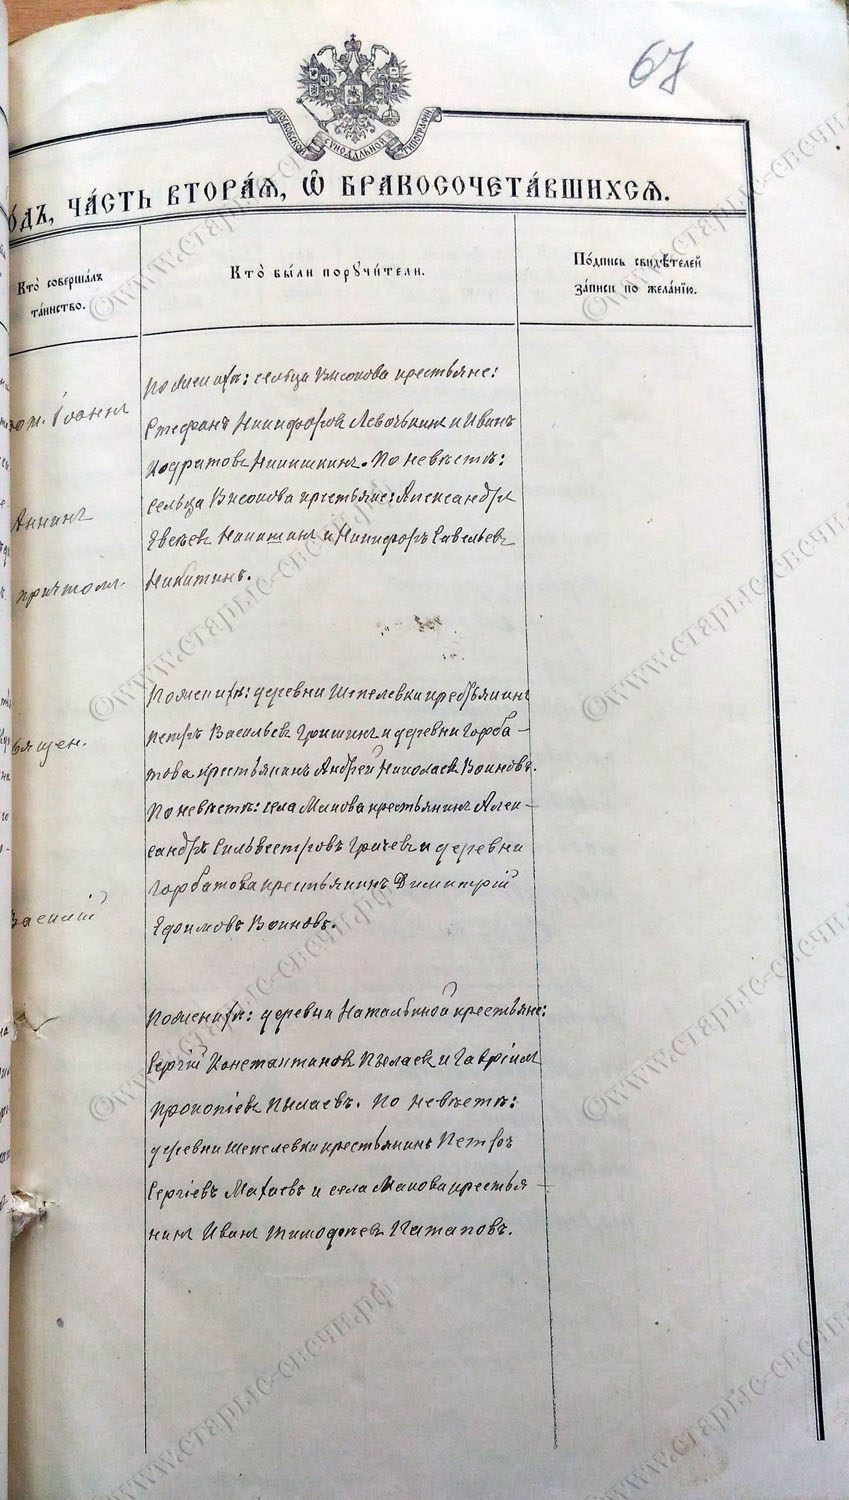 67
МОСКОВСКОЙ СѴНОДАЛЬНОЙ ТИПОГРАФІИ
О́ДЪ, ЧА́СТЬ ВТОРА́Ѧ, Ѽ БРАКОСОЧЕТА́ВШИХСѦ.
Кто̀ соверша́лъ
та́инство.
Кто̀ бы́ли порꙋчи́тели.
По́дпись свидѣ́телей
за́писи по жела́нїю.
Іоаннъ
Аннинъ
причтом
Василій
По женихѣ: сельца Висонова крестьяне:
Стефанъ Никифоровъ Левочкинъ и Иванъ
Кодратовъ Никишкинъ. По невѣстѣ:
сельца Висонова крестьяне: Александръ
Евсѣевъ Никишинъ и Никифоръ Савельевъ
Никитинъ.
По женихѣ: деревни Шепелевки крестьянинъ
Петръ Васильевъ Гришинъ и деревни Горба-
това крестьянинъ Андрей Николаевъ Воиновъ.
По невѣстѣ: села Макова крестьянинъ Алек-
сандръ Сильвестровъ и деревни
Горбатова крестьянинъ Димитрій
Ефимовъ Воиновъ.
По женихѣ: деревни Натальиной крестьяне:
Сергій Константиновъ Пылаевъ и Гавріилъ
Прокопіевъ Пылаевъ. По невѣстѣ:
деревни Шепелевки крестьянинъ Петръ
Сергіевъ Махаевъ и села Макова крестья-
нинъ Иванъ Тимофѣевъ Патаповъ.
©www.старые-свечи.рф